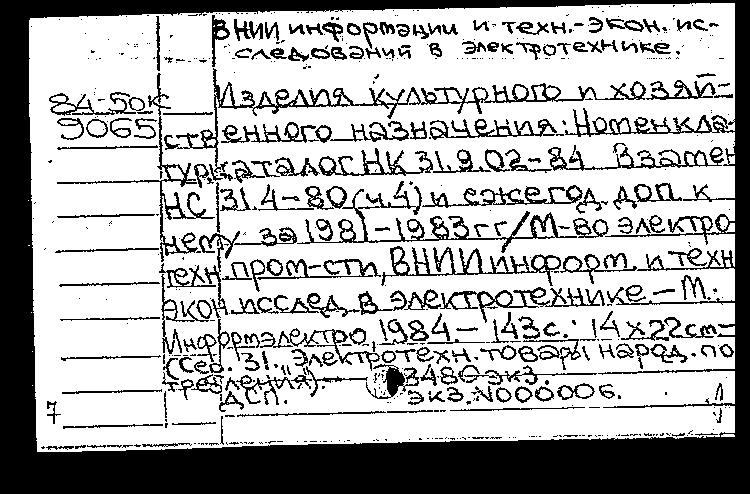 ВНИИ информации и техн.-экон. ис-
следований в электротехнике.
84-50к
9065
Изделия культурного и хозяй-
ственного назначения: Номенкла-
тур.каталог НК 31.9.02-84 Взамен
НС 31.4-80 (ч.4) и ежегод. доп. к
нему за 1981-1983гг/М-во электро
техн.пром-сти, ВНИИ информ. и техн
экон.исслед. в электротехнике.-М.:
Информэлектро, 1984.- 143с.: 14х22cm-
(Сер. 31. "Электротехн.товары народ.по
требления).- 3480 экз.
ДСП. экз.N000006.
7